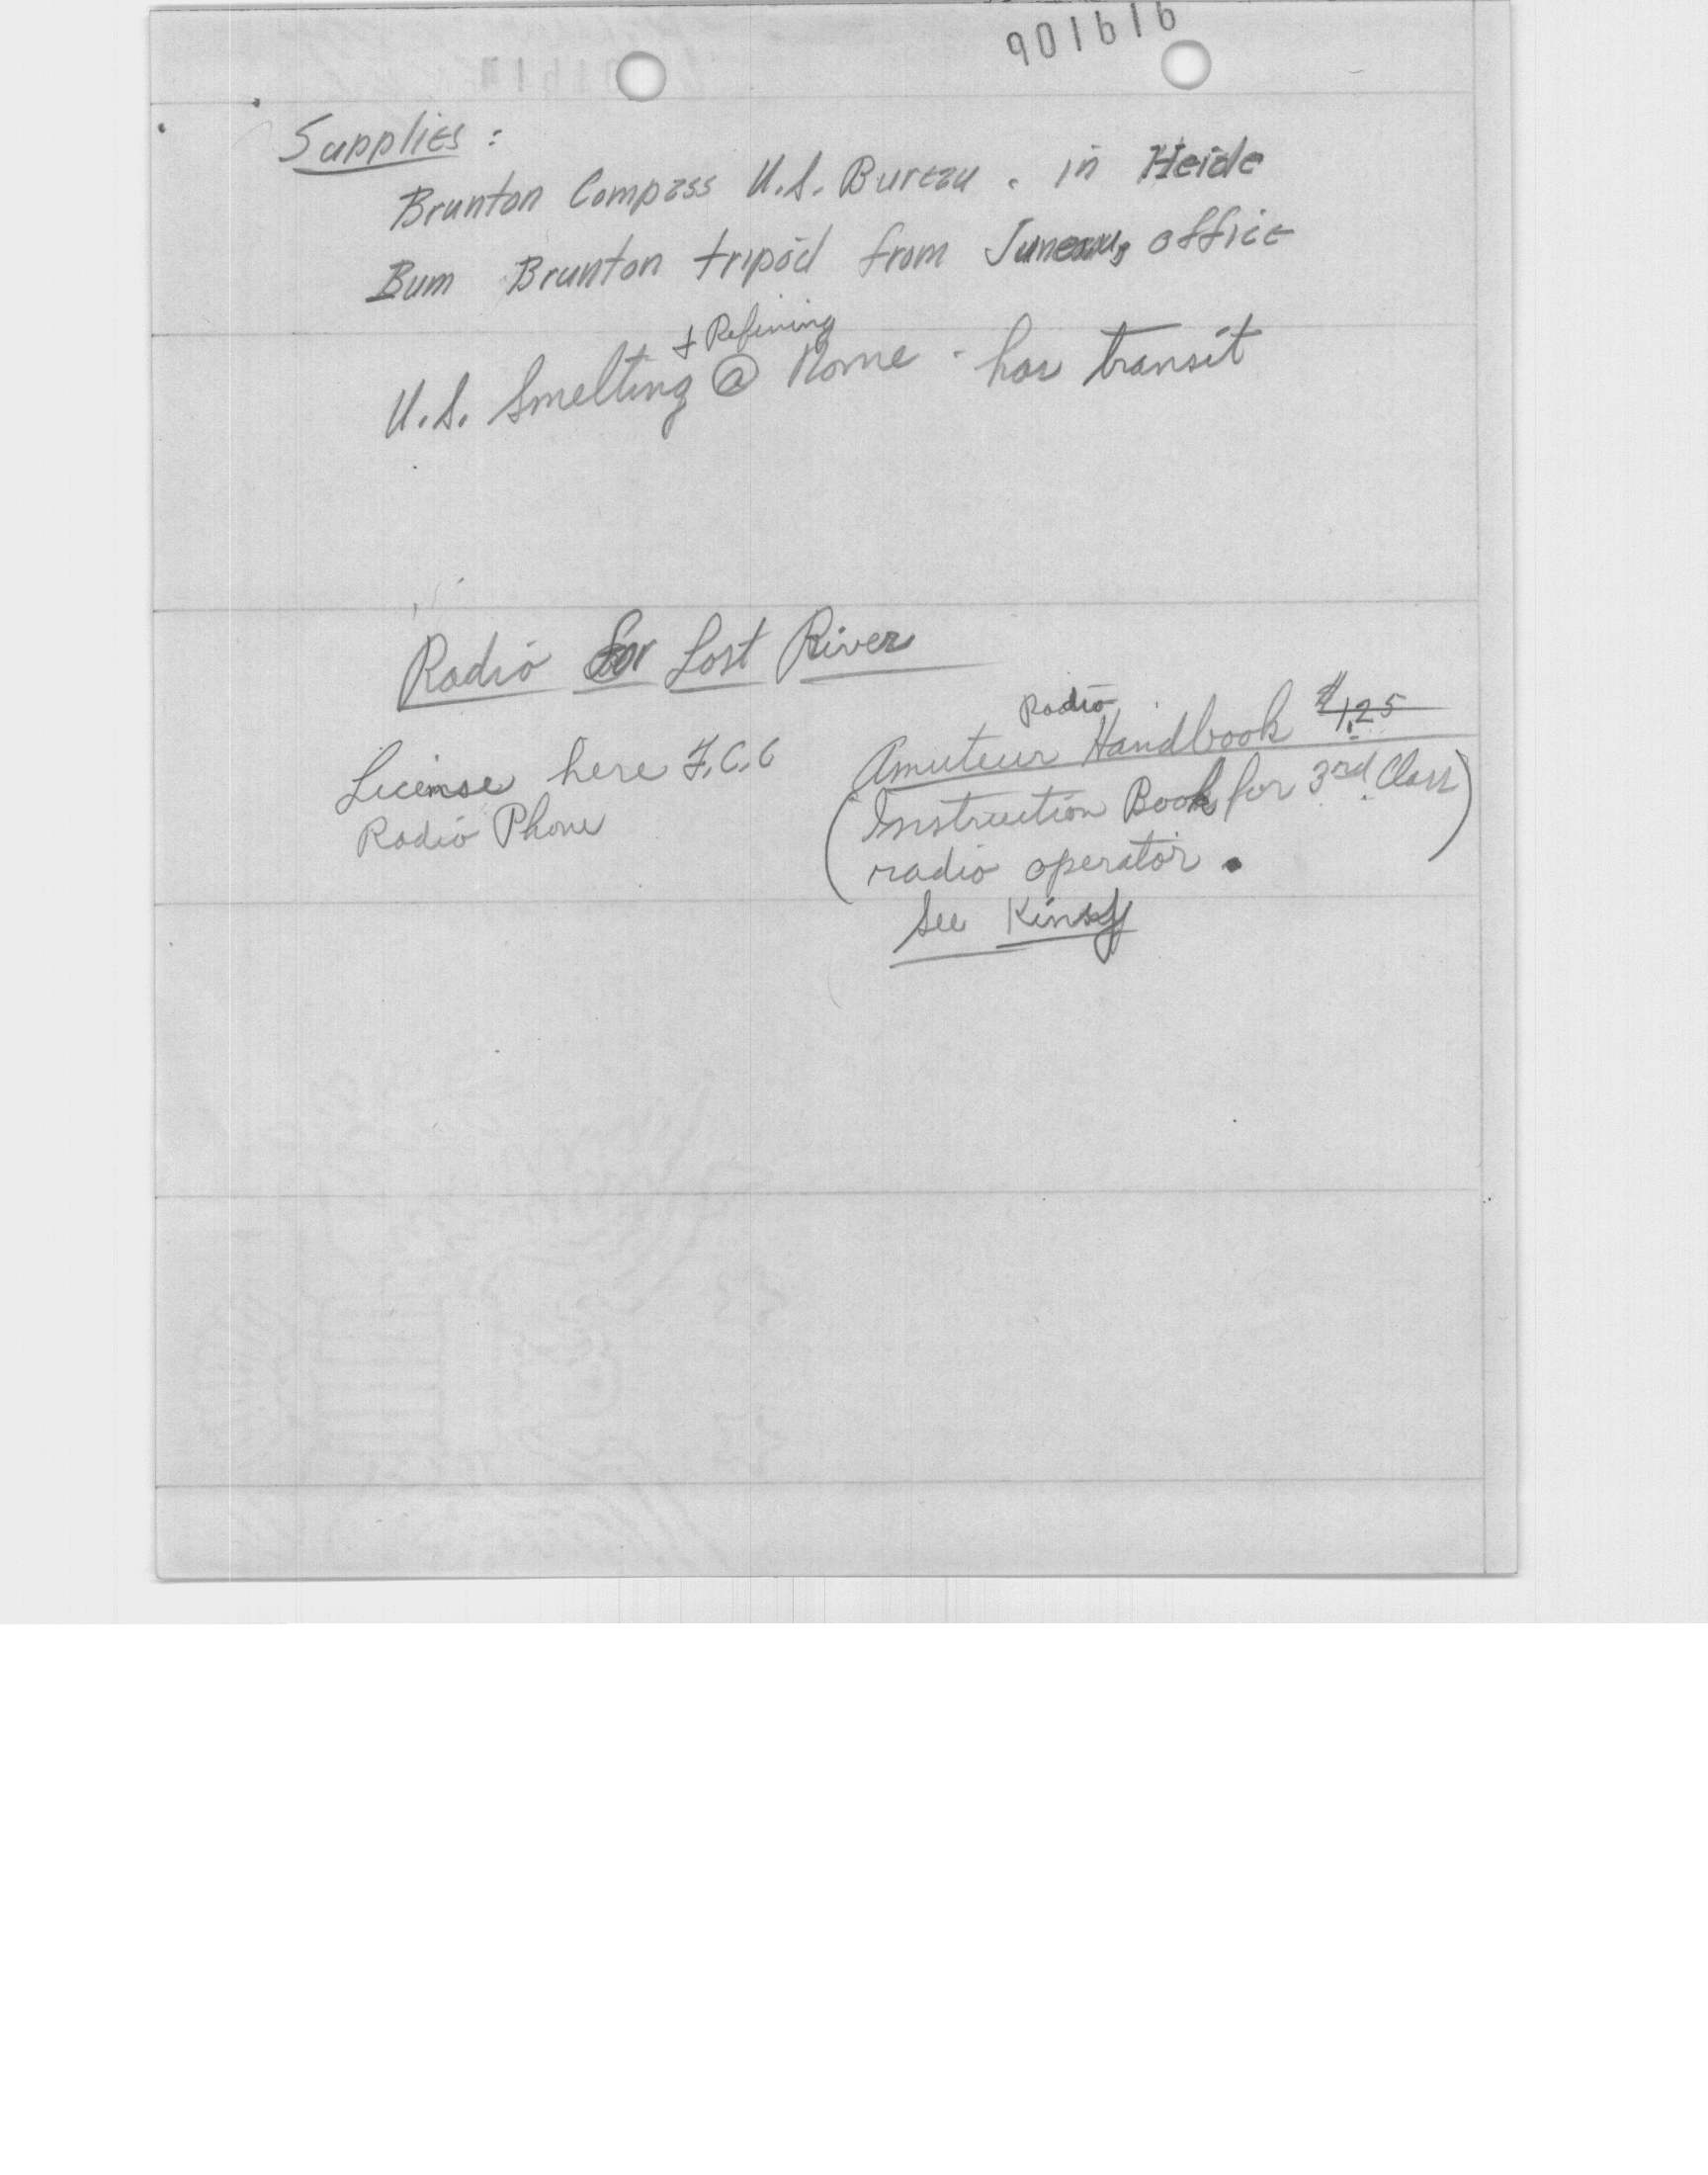 901616
Supplies :
Brunton Compass U.S. Bureau . in Heide
Bum Brunton tripod from Juneau, office
+ Refining
U.S. Smelting @ Nome - has transit
Radio for Lost River
License here F.C.C
Radio Phone
Radio
Amateur Handbook $1.25
(Instruction Book for 3rd Class)
radio operator .
See Kinsy